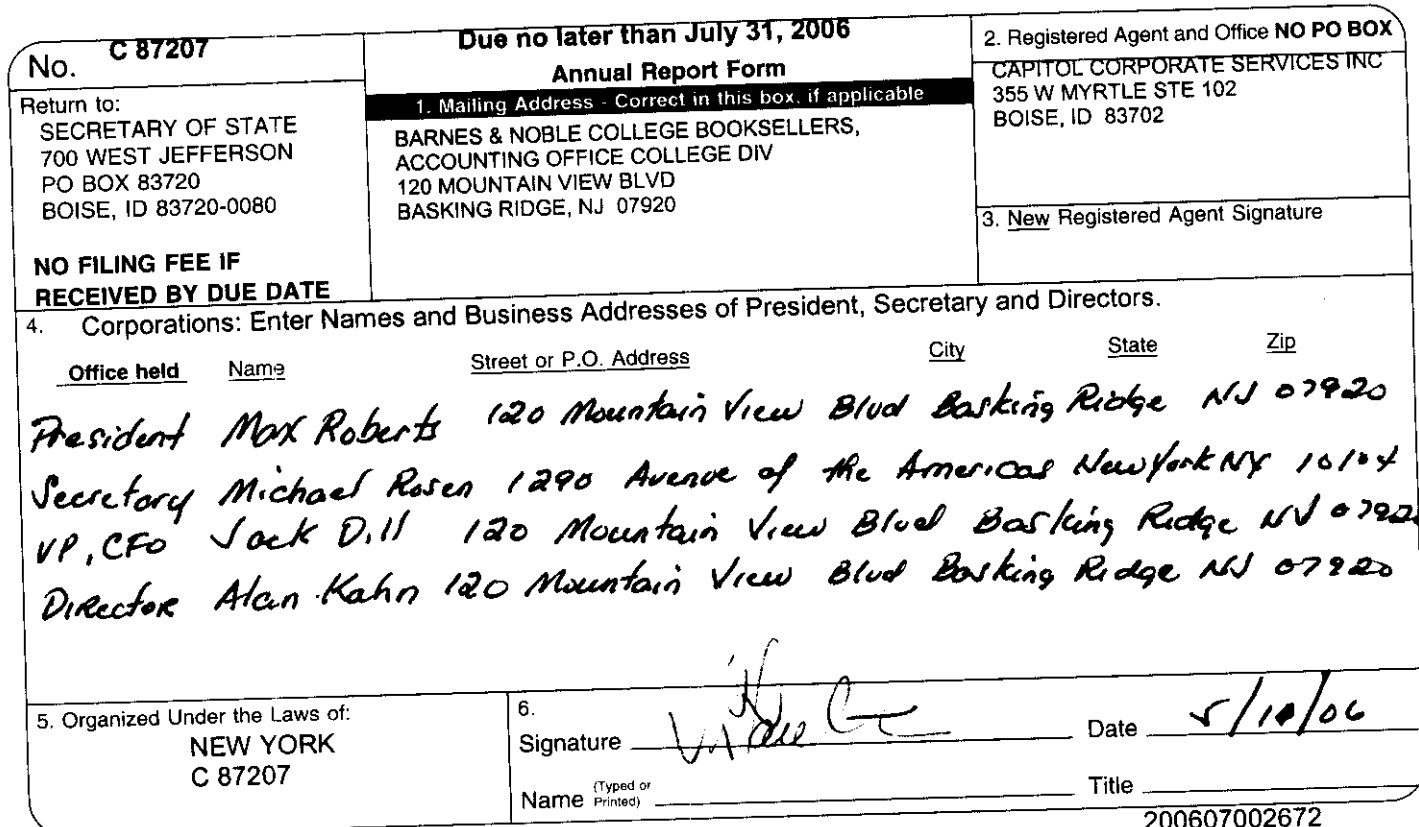 No. C 87207
Return to:
SECRETARY OF STATE
700 WEST JEFFERSON
PO BOX 83720
BOISE, ID 83720-0080
NO FILING FEE IF
RECEIVED BY DUE DATE
Due no later than July 31, 2006
Annual Report Form
1. Mailing Address - Correct in this box, if applicable
BARNES & NOBLE COLLEGE BOOKSELLERS,
ACCOUNTING OFFICE COLLEGE DIV
120 MOUNTAIN VIEW BLVD
BASKING RIDGE, NJ 07920
2. Registered Agent and Office NO PO BOX
CAPITOL CORPORATE SERVICES INC
355 W MYRTLE STE 102
BOISE, ID 83702
3. New Registered Agent Signature
4. Corporations: Enter Names and Business Addresses of President, Secretary and Directors.
Office held Name Street or P.O. Address City State Zip
President Max Roberts 120 Mountain View Blvd Basking Ridge NJ 07920
Secretary Michael Rosen 1290 Avenue of the Americas New York NY 10104
VP, CFO Jack Dill 120 Mountain View Blvd Basking Ridge NJ 07920
Director Alan Kahn 120 Mountain View Blvd Basking Ridge NJ 07920
5. Organized Under the Laws of:
NEW YORK
C 87207
6.
Signature
Date 5/10/06
Name (Typed or Printed)
Title
200607002672